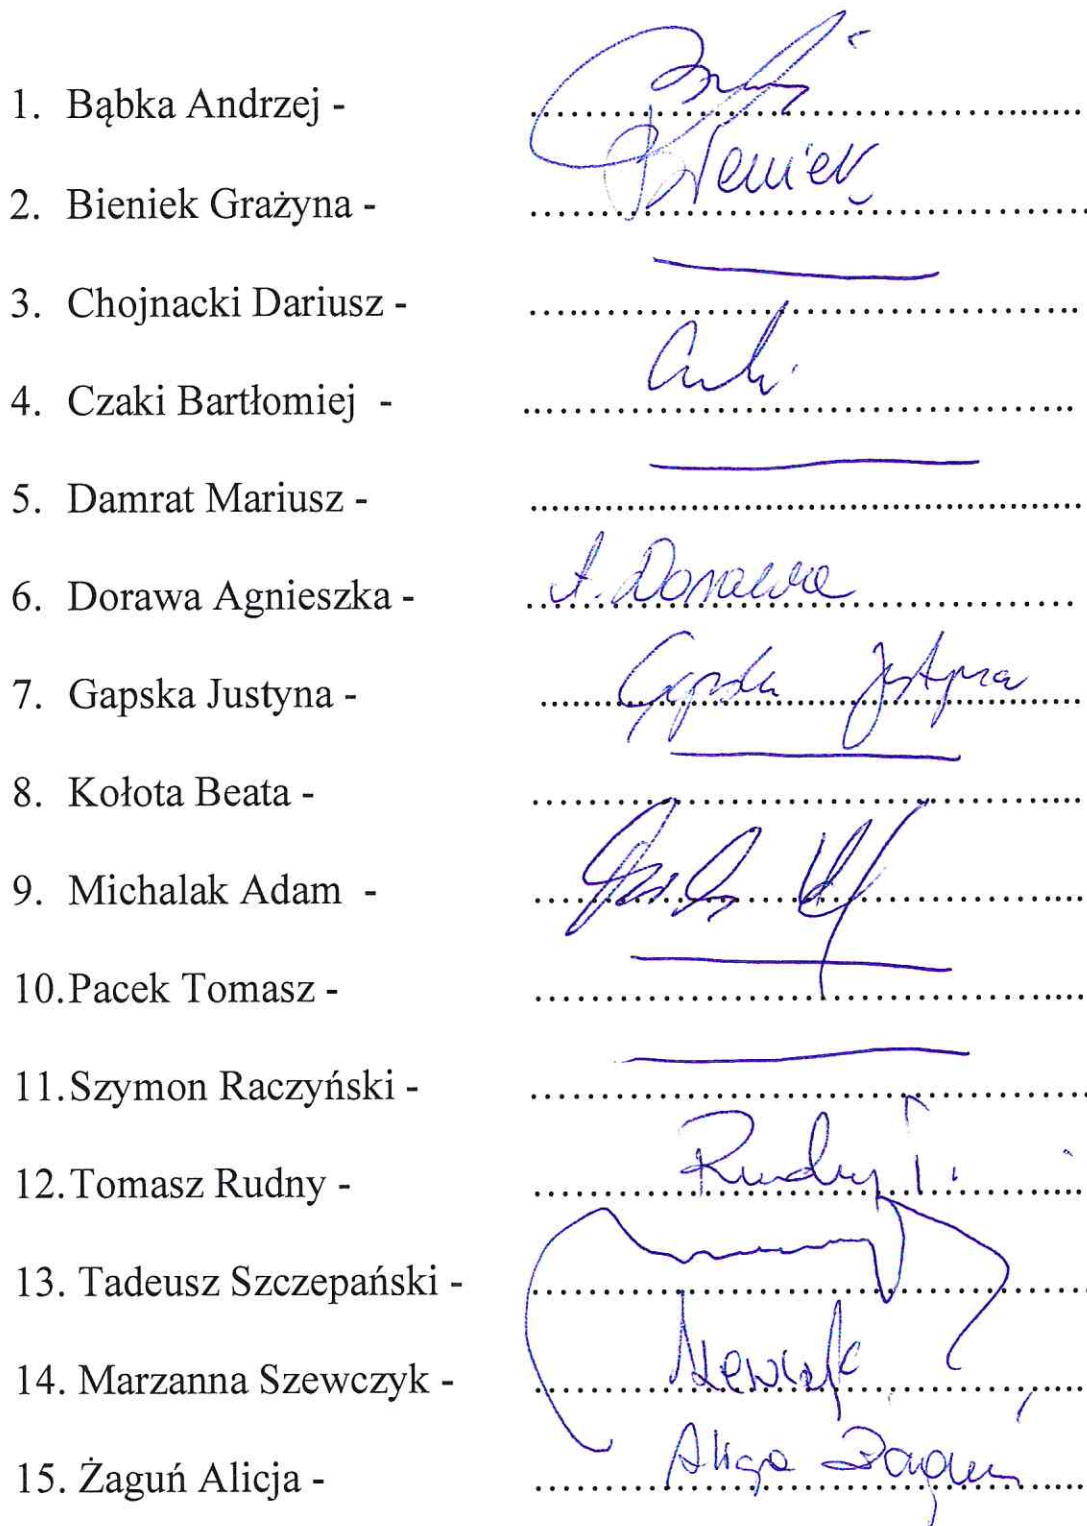 1. Bąbka Andrzej - ......................................
2. Bieniek Grażyna - ...................................... Bieniek
3. Chojnacki Dariusz - ......................................
4. Czaki Bartłomiej - ......................................
5. Damrat Mariusz - ......................................
6. Dorawa Agnieszka - ...................................... A. Dorawa
7. Gapska Justyna - ...................................... Gapska Justyna
8. Kołota Beata - ......................................
9. Michalak Adam - ......................................
10.Pacek Tomasz - ......................................
11.Szymon Raczyński - ......................................
12.Tomasz Rudny - ...................................... Rudny T.
13. Tadeusz Szczepański - ......................................
14. Marzanna Szewczyk - ......................................
15. Żaguń Alicja - ...................................... Alicja Żaguń